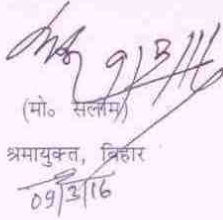 9/3/16
(मो० सलाम)
श्रमायुक्त, बिहार
09/3/16